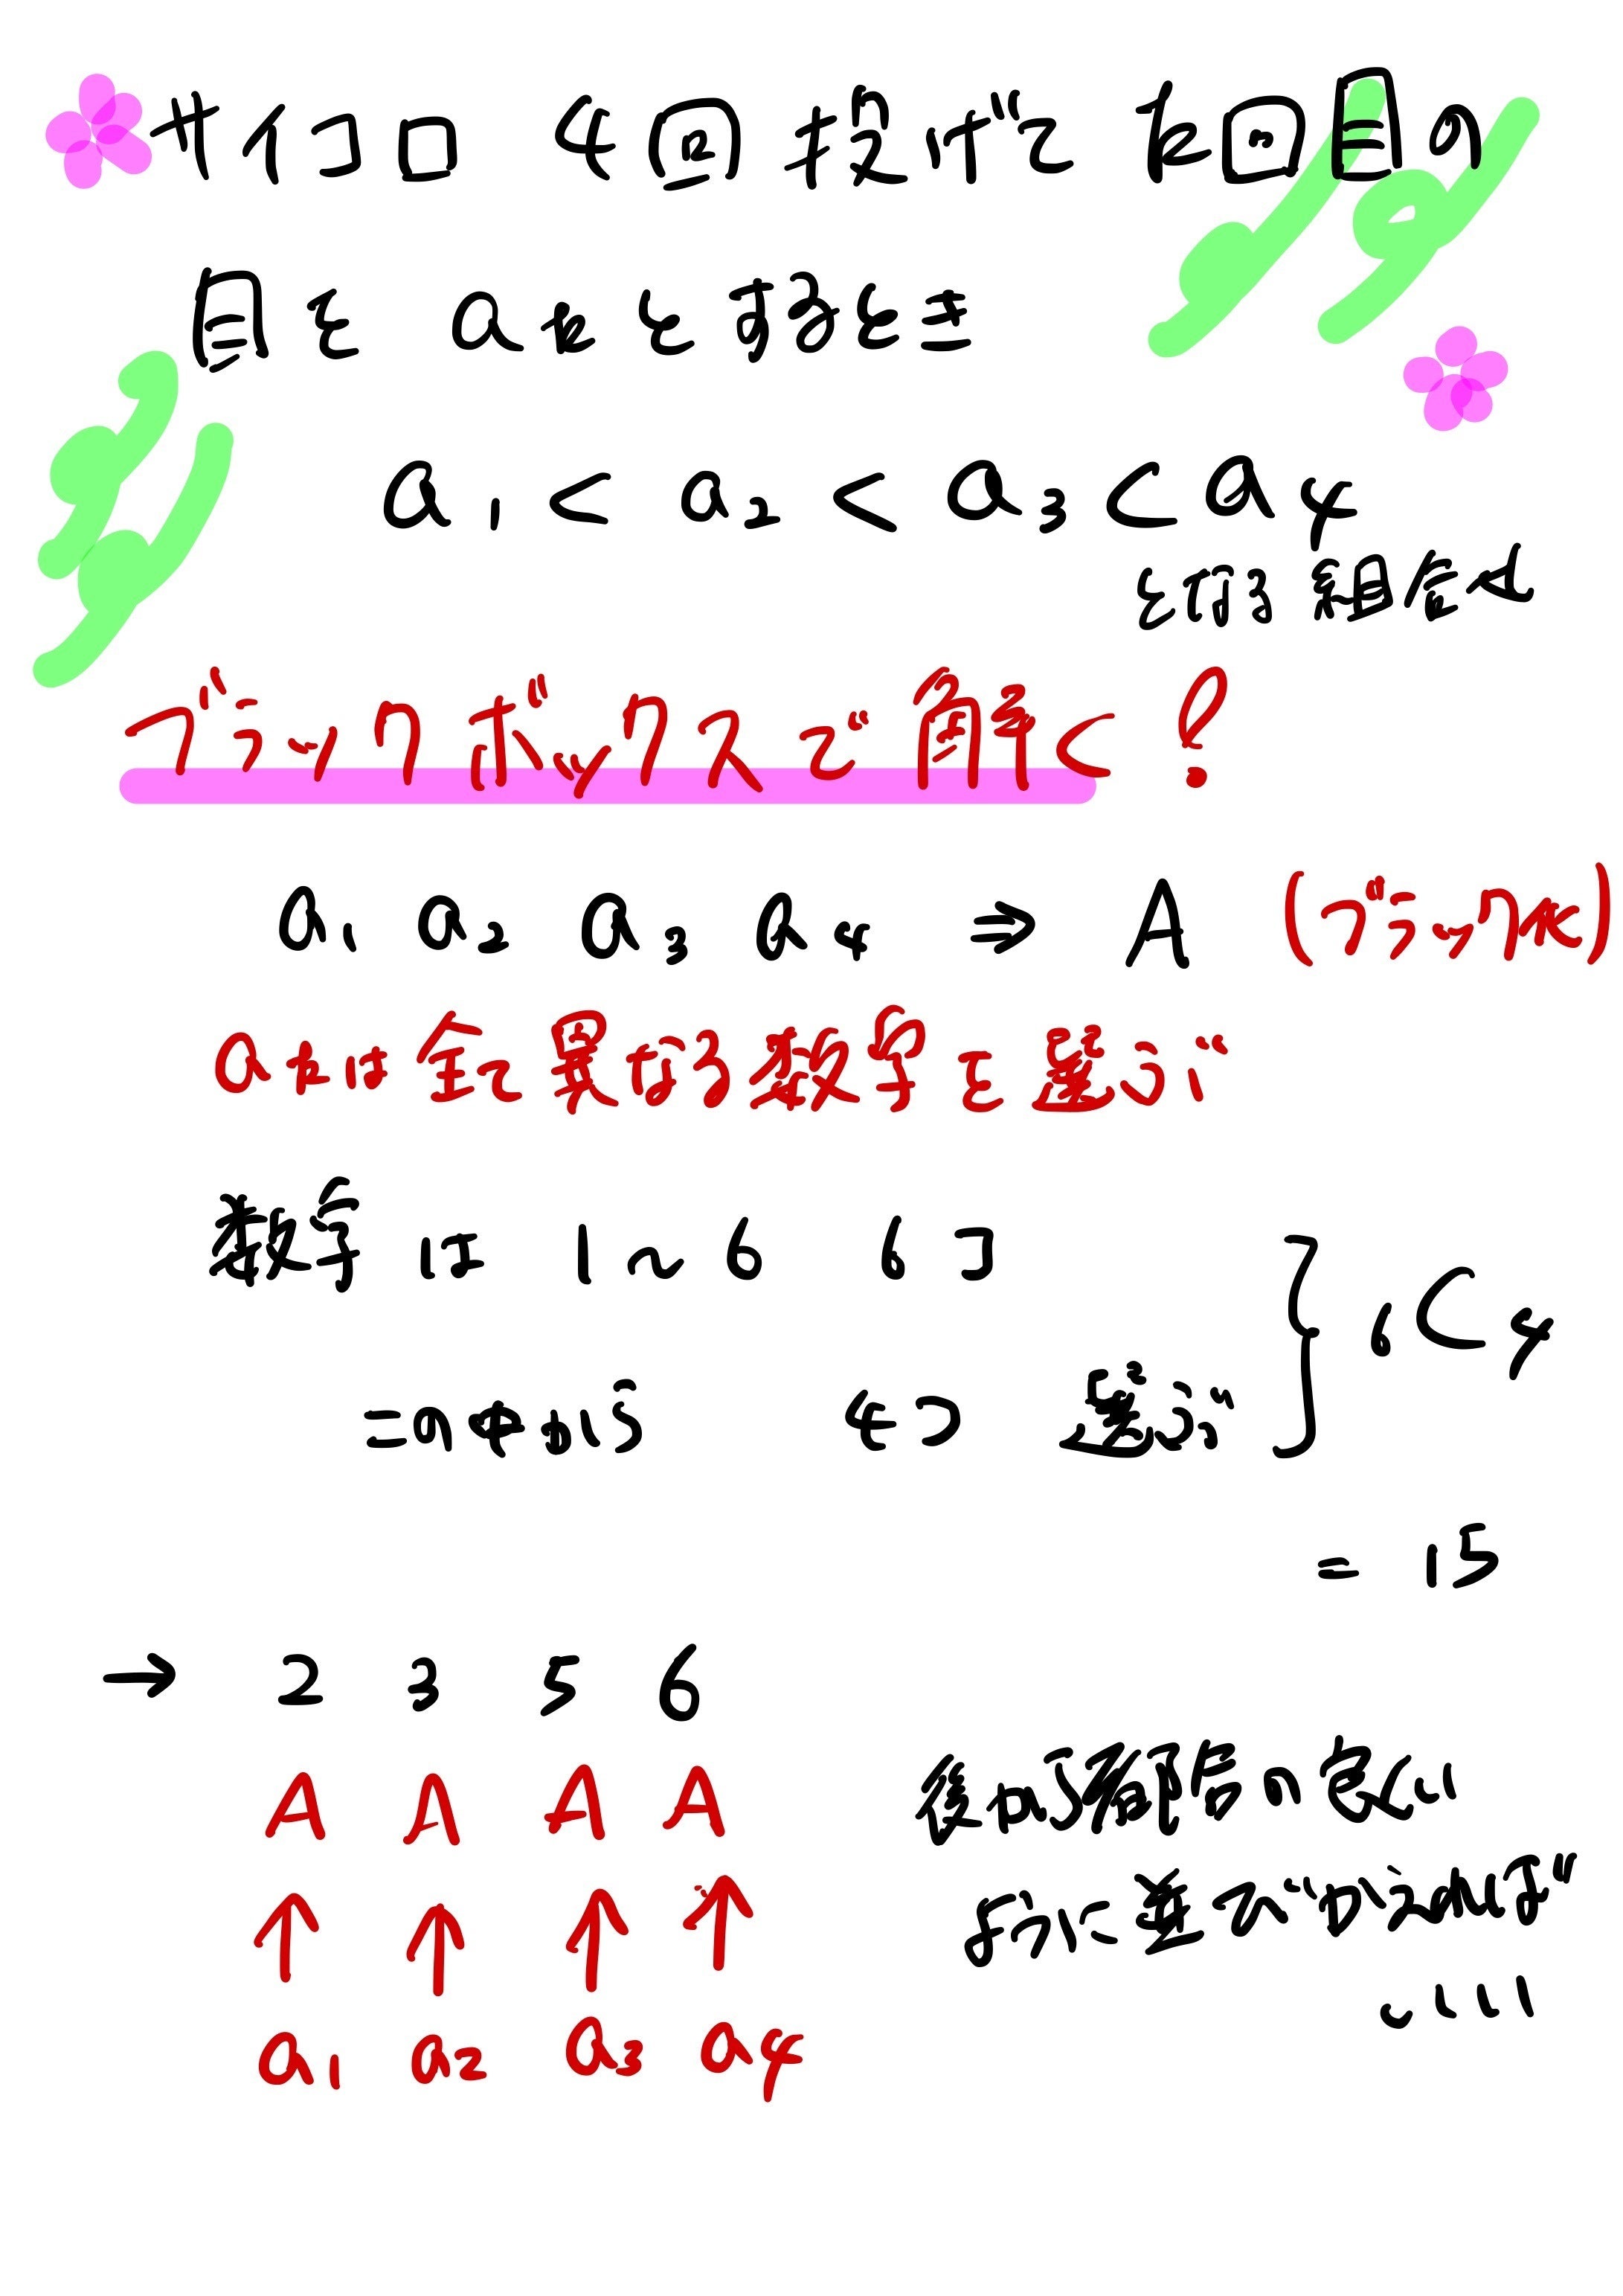 サイコロ 4回投げて k回目の
目を akとするとき
a1 < a2 < a3 < a4
となる組合せ
ブラックボックスで解く!
a1 a2 a3 a4 ⇒ A (ブラック化)
akは全て異なる数字を選ぶ
数字は 1~6 6コ
この中から 4つ 選ぶ
} 6C4
= 15
→ 2 3 5 6
A A A A
↑ ↑ ↑ ↑
a1 a2 a3 a4
後から都合の良い
ように並びかえれば
いい